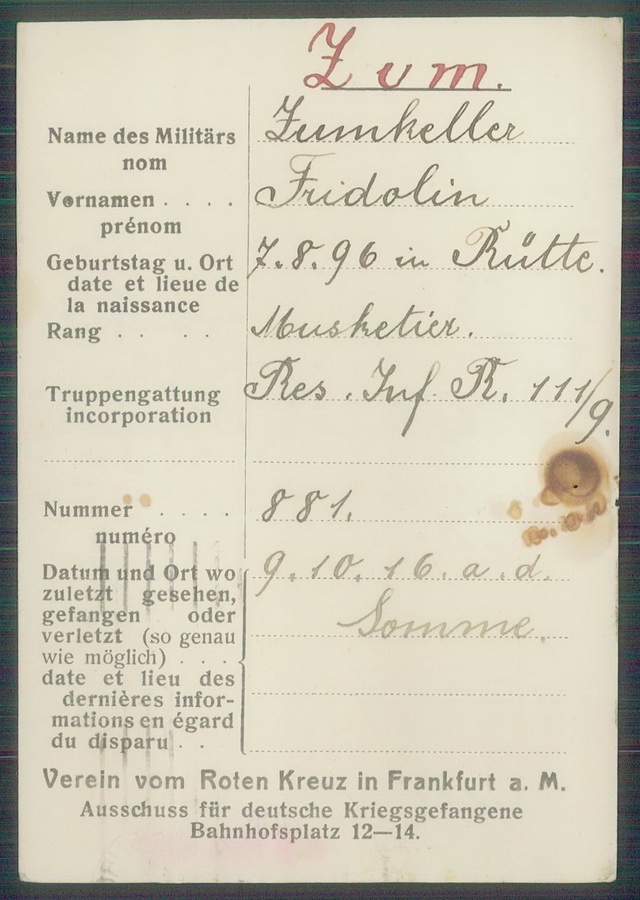 Zum.
Name des Militärs Zumkeller
nom
Vornamen . . . . Fridolin
prénom
Geburtstag u. Ort 7.8.96 in Rütte.
date et lieue de
la naissance
Rang . . . . Musketier.
Truppengattung Res. Inf. R. 111/9.
incorporation
Nummer . . . . 881.
numéro
Datum und Ort wo 9.10.16. a. d.
zuletzt gesehen,
gefangen oder Somme.
verletzt (so genau
wie möglich) . . .
date et lieu des
dernières infor-
mations en égard
du disparu . .
Verein vom Roten Kreuz in Frankfurt a. M.
Ausschuss für deutsche Kriegsgefangene
Bahnhofsplatz 12—14.